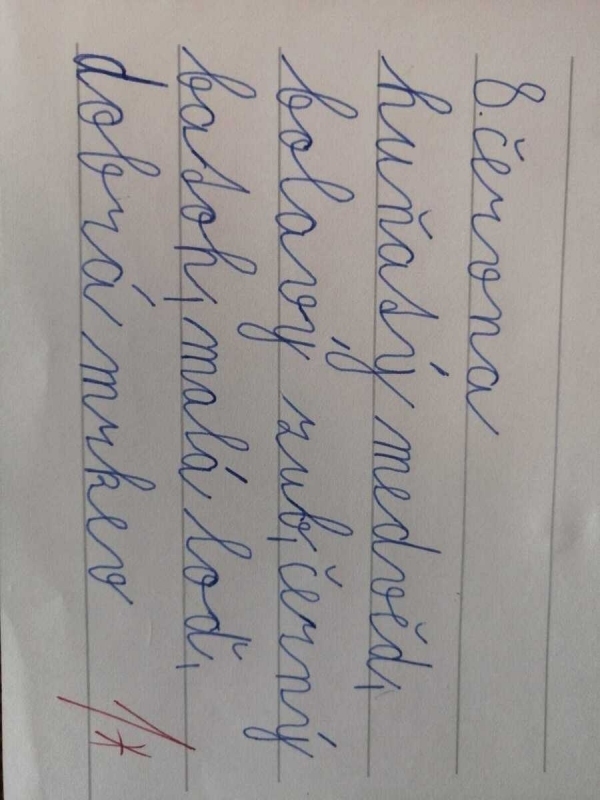 8. června
huňatý medvěd,
bolavý zub, černý
batoh, malá loď,
dobrá mrkev
1*